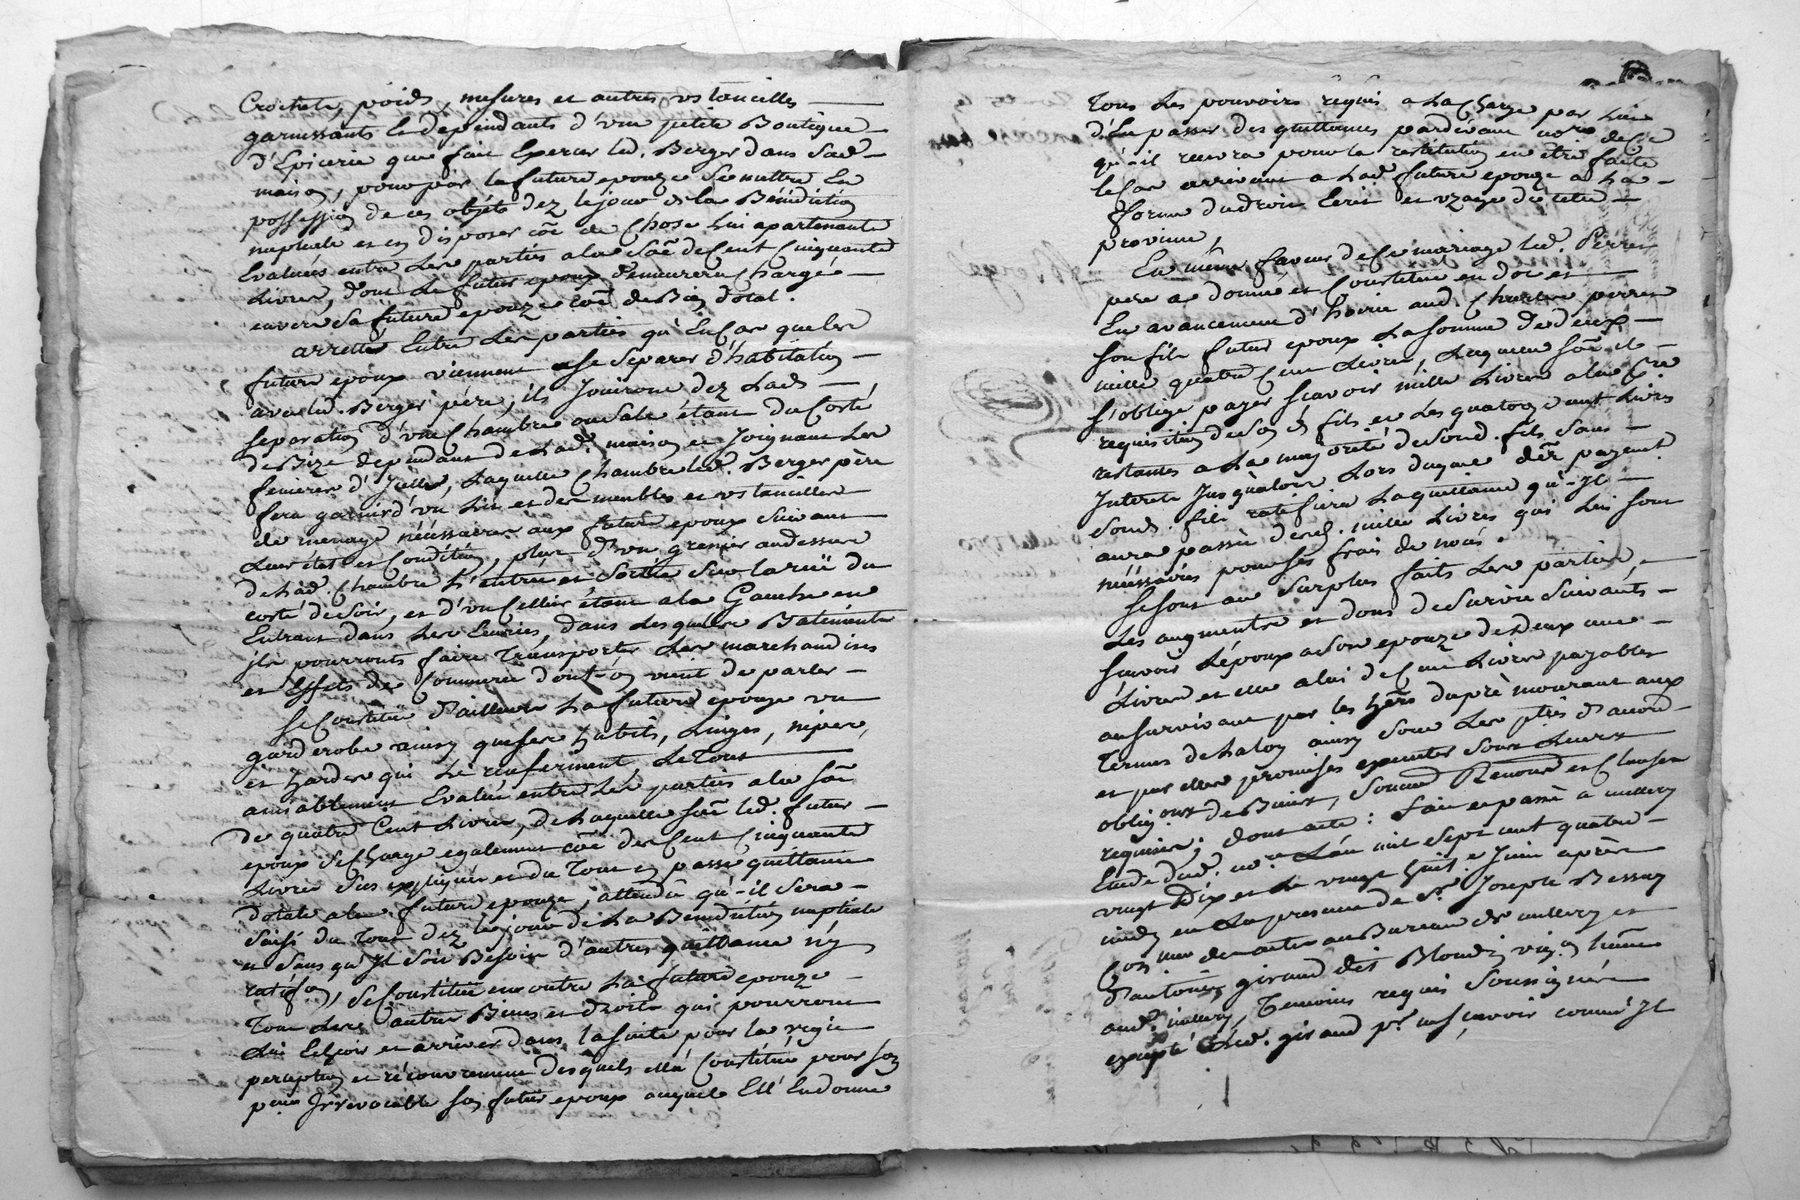 Crochets, poids, mesures et autres ustancilles
garnissants et dependants d'une petite Boutique
d'Epicerie que fait Exercer led. Berger dans Sad.
maison, pour par la future epouze se mettre En
possession de ces objets dez le jour de la Bénédiction
nuptiale et en disposer coe de Chose lui apartenante
Evalués entre Les parties a la Soe de Cent Cinquante
Livres, dont Le futur epoux demeurera Chargé
envers Sa future epouze coe de Bien dotal.
arretté Entre Les parties qu'En Cas que les
futurs epoux viennent a Se Separer d'habitation
avec led. Berger père, ils Jouiront dez Lad.
Separation d'une Chambre ou Sale étant du Costé
de Bize dependant de Lad. maison et Joignant Les
fenieres d'Icelle, Laquelle Chambre led. Berger père
fera garnir d'un Lit et des meubles et ustancilles
de menage néssaires aux futurs epoux Suivant
Leur état et Condition, plus d'un grenier audessus
de Lad. Chambre L'entrée et Sortie Sur la rüe du
costé de Soir, et d'un Cellier étant a la Gauche en
Entrant dans Les Ecuries, dans Lesquels Batiments
ils pourront faire Transporter Les marchandises
et Effets de Commerce dont on vient de parler
Se Constitüe d'ailleurs La future epouze un
garderobe ainsy que Ses habits, Linges, nipes,
et hardes qui Le renferment Le Tout
amiablement Evalué entre Les parties a la Soe
De quatre Cent Livres, de Laquelle Soe led. futur
epoux Se Charge egalement coe des Cent Cinquante
Livres Sus expliqués et du Tout en passe quittance
dotale a la future epouze, attendu qu'-il Sera
Saisi du Tout dez le jour de La Bénédiction nuptiale
et Sans qu'Jl Soit Besoin d'autres quittance n'y
ratifon, Se Constitüe en outre La future epouze
Tous Les autres Biens et droits qui pourront
Lui Echoir et arriver dans la Suite pour la regie
perception et récouvrement desquels Elle Constitüe pour Son
pour Irrevocable Son futur epoux auquel Ell' En donne
Tous Les pouvoirs requis a La Charge par Lui
d'En passer des quittances pardevant nore de Ce
qu'-il recevra pour la restitution en etre faite
le Cas arrivant a Lad. future epouze a La
fforme du droit Ecrit et uzage de cette
province,
En même faveur de Ce mariage led. Perret
pere a donné et Constitué en dot et
En avancement d'hoirie aud. Charles perret
Son fils futur epoux La Somme de deux
mille quatre Cent Livres, Laquelle Soe il
S'oblige payer Scavoir mille Livres a la 1re
requisition de Son d. fils et Les quatorze cent Livres
restantes a La majorité de Sond. fils Sans
Interets Jusqu'alors Lors duquel der payent
Sond. fils ratifiera La quittance qu'-Jl
aura passée desd. mille Livres qui Lui Sont
néssaires pour Ses frais de noces.
Se Sont au Surplus faits Les parties,
Les augments et dons de Survie Suivants
Scavoir L'époux a Son epouze de Deux cent
Livres et elle a lui de Cent Livres payables
au Survivant par les hers du prè mourant aux
Termes de La loy ainsy Sont Les pties d'accord
et par elles promises executer Sous Leurs
obligons de Biens, Soumon Renonon et Clauses
requises; dont acte: fait et passé a millery
Etude dud. nore L'an mil Sept cent quatre
vingt Dix et Le vingt huit e Juin après
midy en La presence de Sr. Joseph Bessay
Comis des actes au Bureau de millery et
d'antoine giraud dit Blondin vigon a lhame
aud. millery, Temoins requis Soussignés
excepté Led. giraud pr ne Scavoir comme Jl